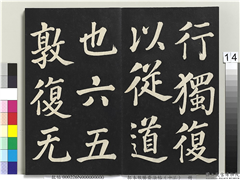 行獨復
以從道
也六五
敦復无
14